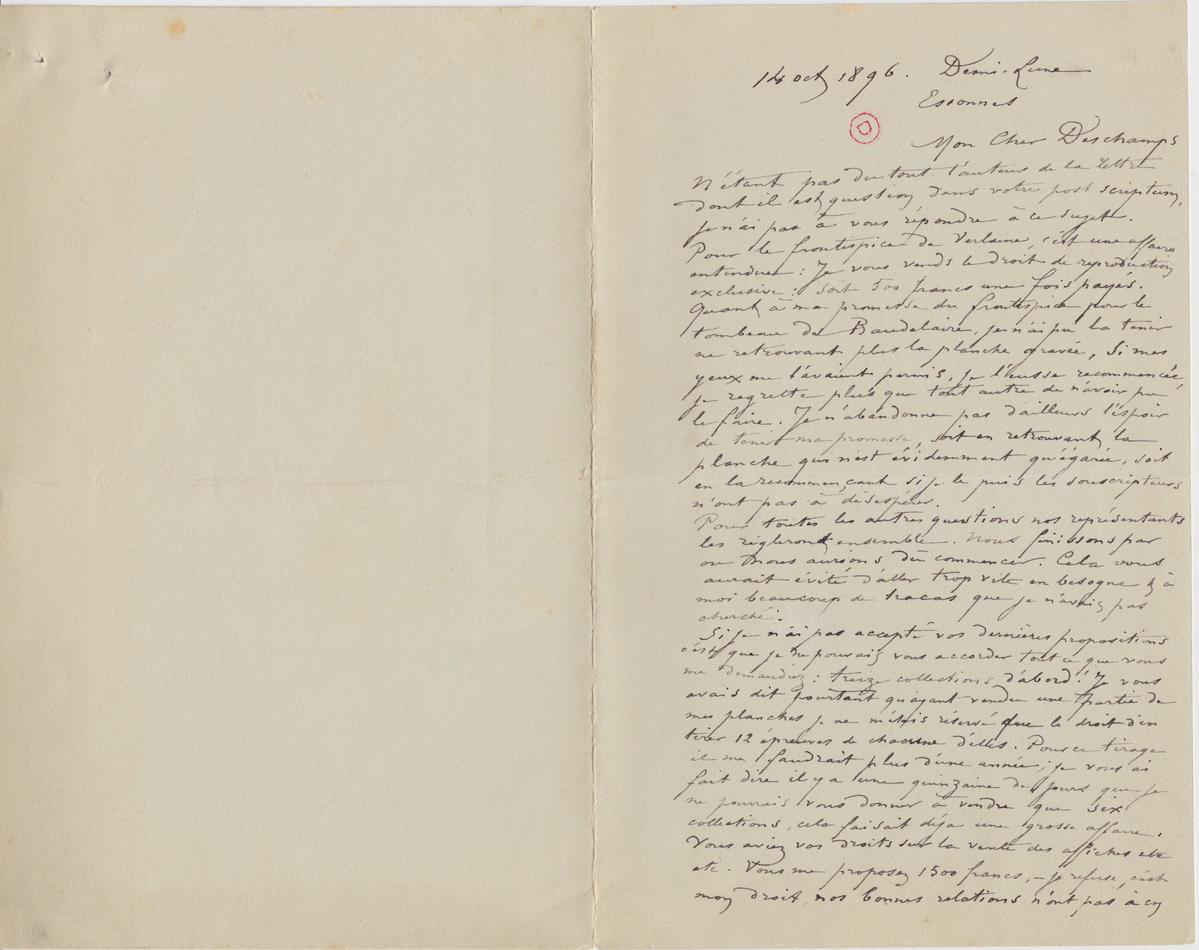 14 oct 1896. Demi-Lune
Essonnes
D
Mon Cher Deschamps
N'étant pas du tout l'auteur de la lettre
dont il est question dans votre post scriptum,
je n'ai pas à vous répondre à ce sujet.
Pour le frontespice de Verlaine, c'est une affaire
entendue : Je vous vends le droit de reproduction
exclusive : soit 500 francs une fois payés.
Quant à ma promesse du frontespice pour le
tombeau de Baudelaire, je n'ai pu la tenir
ne retrouvant plus la planche gravée, Si mes
yeux me l'avaient permis, je l'eusse recommencée,
je regrette plus que tout autre de n'avoir pu
le faire. Je n'abandonne pas d'ailleurs l'espoir
de tenir ma promesse, soit en retrouvant la
planche qui n'est évidemment qu'égarée, soit
en la recommençant si je le puis les souscripteurs
n'ont pas à désespérer.
Pour toutes les autres questions nos représentants
les régleront ensemble. Nous finissons par
où nous aurions dû commencer. Cela vous
aurait évité d'aller trop vite en besogne & à
moi beaucoup de tracas que je n'avais pas
cherché.
Si je n'ai pas accepté vos dernières propositions
c'est que je ne pouvais vous accorder tout ce que vous
me demandiez : treize collections d'abord ! Je vous
avais dit pourtant qu'ayant vendu une partie de
mes planches je ne m'étais réservé que le droit d'en
tirer 12 épreuves de chacune d'elles. Pour ce tirage
il me faudrait plus d'une année ; je vous ai
fait dire il y a une quinzaine de jours que je
ne pourrais vous donner à vendre que six
collections, cela faisait déja une grosse affaire.
Vous aviez vos droits sur la vente des affiches etc
etc. Vous me proposez 1500 francs, – je refuse, c'est
mon droit, nos bonnes relations n'ont pas à en